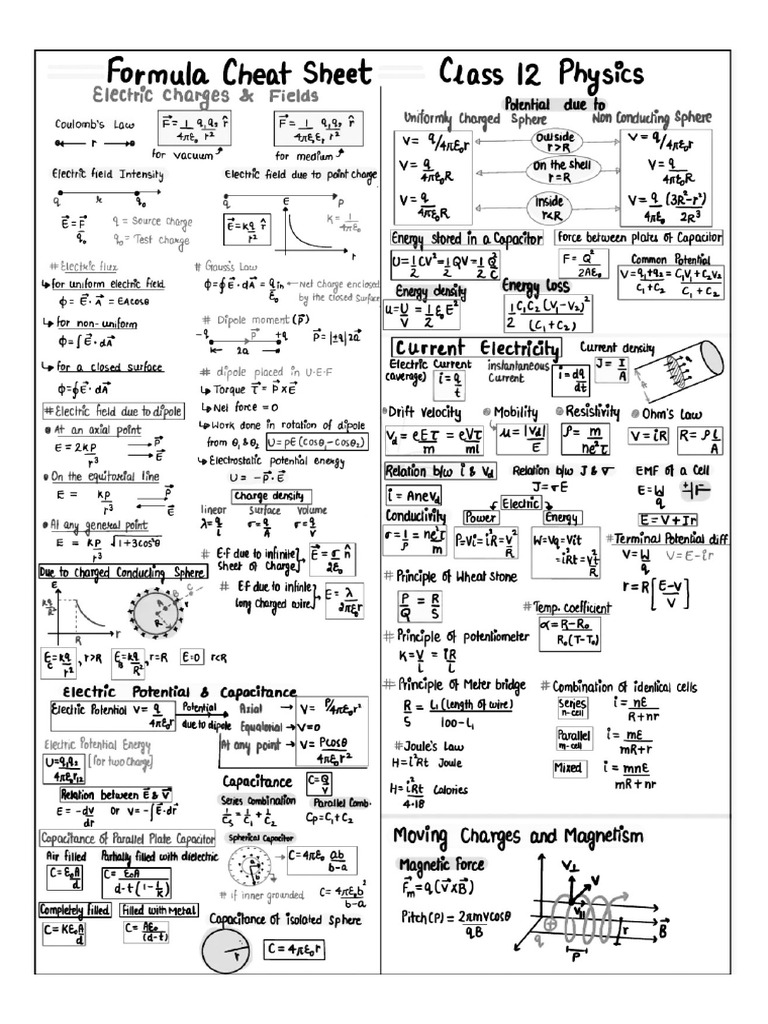 Formula Cheat Sheet Class 12 Physics
Electric Charges & Fields
Coulomb's Law
r
F⃗ = 1/4πε₀ q₁q₂/r² r̂
for vacuum
F⃗ = 1/4πε₀εᵣ q₁q₂/r² r̂
for medium
Electric field Intensity
q r q₀
E⃗ = F⃗/q₀
q = Source charge
q₀ = Test charge
Electric field due to point charge
q P
E
r
E⃗ = kq/r² r̂
K = 1/4πε₀
# Electric flux
for uniform electric field
Φ = E⃗ · A⃗ = EA cosθ
for non-uniform
Φ = ∫E⃗ · dA⃗
for a closed surface
Φ = ∮E⃗ · dA⃗
# Gauss's Law
Φ = ∮E⃗ · dA⃗ = qin/ε₀
Net charge enclosed
by the closed Surface
# Dipole moment (p⃗)
-q +q
2a
P⃗ = |±q| 2a⃗
# dipole placed in U·E·F
Torque τ⃗ = P⃗ × E⃗
Net force = 0
Work done in rotation of dipole
from θ₁ & θ₂ U = PE (cosθ₁ - cosθ₂)
Electrostatic potential energy
U = -P⃗ · E⃗
# Electric field due to dipole
At an axial point
E = 2KP/r³
P⃗
E⃗
On the equitorial line
E = KP/r³
P⃗
E⃗
At any general point
E = KP/r³ √1+3cos²θ
Charge density
linear Surface volume
λ = q/L σ = q/A σ = q/V
# Ef due to infinite
sheet of Charge
E⃗ = σ/2ε₀ n̂
# Ef due to infinite
long charged wire
E = λ/2πε₀r
Due to charged Conducting Sphere
E
kq/R²
R r
E = kq/r², r>R
E = kq/R², r=R
E=0 r<R
Electric Potential & Capacitance
Electric Potential V = q/4πε₀r
Potential
due to dipole
Axial V = P/4πε₀r²
Equatorial V=0
At any point V = Pcosθ/4πε₀r²
Electric Potential Energy
U = q₁q₂/4πε₀r₁₂ (for two Charge)
Relation between E⃗ & V⃗
E = -dV/dr or V = -∫E⃗·dr⃗
Capacitance C = Q/V
Series Combination
1/Cs = 1/C₁ + 1/C₂
Parallel Comb.
Cp = C₁ + C₂
Capacitance of Parallel Plate Capacitor
Air filled
C = ε₀A/d
Partially filled with dielectric
C = ε₀A/d-t(1-1/k)
Completely filled
C = Kε₀A/d
Filled with Metal
C = Aε₀/(d-t)
Spherical Capacitor
C = 4πε₀ ab/b-a
# if inner grounded C = 4πε₀b²/b-a
Capacitance of isolated Sphere
r
C = 4πε₀r
Potential due to
Uniformly Charged Sphere Non Conducting Sphere
V = q/4πε₀r outside r>R V = q/4πε₀r
V = q/4πε₀R On the shell r=R V = q/4πε₀R
V = q/4πε₀R inside r<R V = q/4πε₀ (3R²-r²)/2R³
Energy stored in a Capacitor
U = 1/2 CV² = 1/2 QV = 1/2 Q²/C
Force between plates of Capacitor
F = Q²/2Aε₀
Common Potential
V = q₁+q₂/C₁+C₂ = C₁V₁+C₂V₂/C₁+C₂
Energy density
u = U/V = 1/2 ε₀E²
Energy Loss
1/2 C₁C₂(V₁-V₂)²/(C₁+C₂)
Current Electricity
Electric Current
(average) i = q/t
instantaneous
Current i = dq/dt
Current density
J = I/A
Drift Velocity
Vd = eEτ/m = eVτ/ml
Mobility
μ = |Vd|/E
Resistivity
ρ = m/ne²τ
Ohm's Law
V = iR R = ρL/A
Relation b/w i & Vd
i = AneVd
Relation b/w J & σ
J = σE
EMF of a Cell
E = W/q
E = V + Ir
Conductivity
σ = 1/ρ = ne²τ/m
Electric
Power
P = Vi = i²R = V²/R
Energy
W = Vq = Vit
= i²Rt = V²t/R
# Terminal Potential diff
V = W/q V = E - ir
r = R[E-V/V]
# Principle of Wheat Stone
P/Q = R/S
# Temp. coefficient
α = R-R₀/R₀(T-T₀)
# Principle of potentiometer
K = V/L = iR/L
# Principle of Meter bridge
R/S = L₁(Length of wire)/100-L₁
# Combination of identical cells
Series
n-cell
i = nE/R+nr
Parallel
m-cell
i = mE/mR+r
Mixed
i = mnE/mR+nr
# Joule's Law
H = i²Rt Joule
H = i²Rt/4·18 Calories
Moving Charges and Magnetism
Magnetic Force
F⃗m = q(V⃗×B⃗)
Pitch(P) = 2πmvcosθ/qB
V⊥ V
V||
q
P
r
B⃗